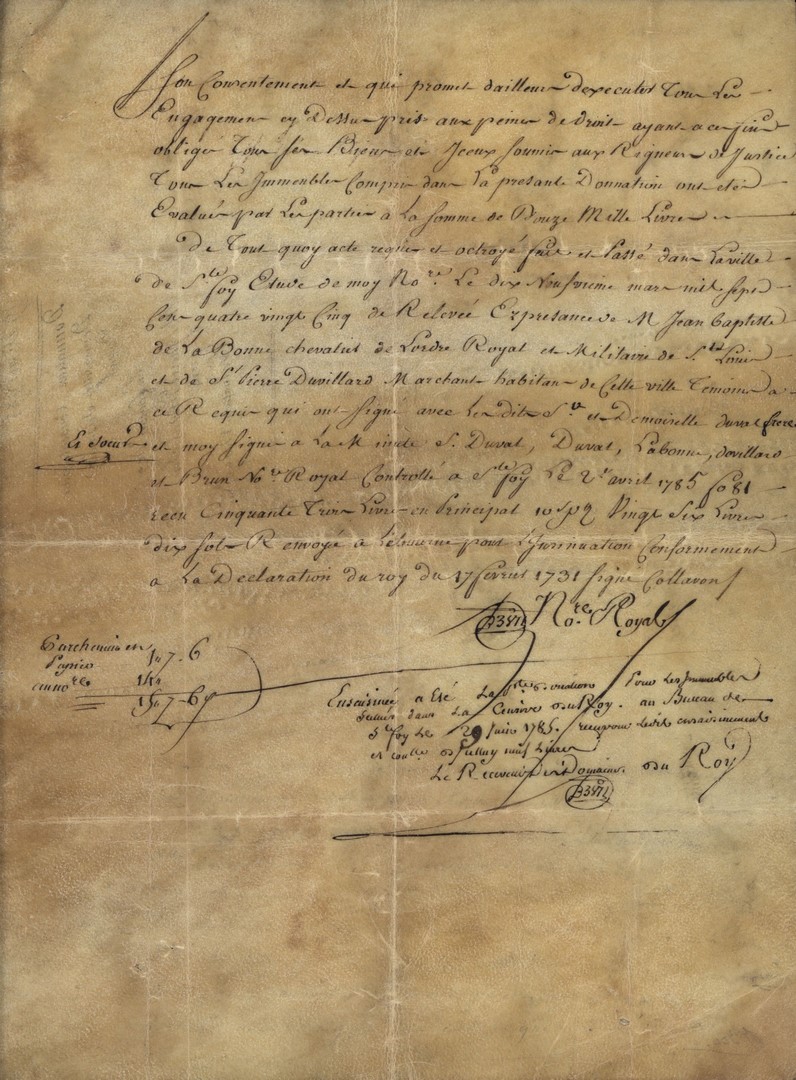 son Consentement et qui promet dailleur dexecuter Tous Les
Engagement cy Dessus pris aux peines de droit ayant a ces fins
obligé Tous ses Biens et Iceux soumis aux Rigueur de Justice
Tous Les Immeubles Compris dans La presante Donnation ont été
Evalués par Les parties à La somme de Douze Mille Livres
De Tout quoy acte requis et octroyé fait et Passé dans La ville
de Ste foy Etude de moy Nore. Le dix Neufvieme mars mil sept
Cens quatre vingt Cinq de Relevée En presance de M Jean Baptiste
de La Bonne chevalier de Lordre Royal et Militaire de St Louis
et de Sr Pierre Duvillard Marchant habitan de Cette ville Temoins a
ce Requis qui ont signé avec Les dits Sr et Demoiselle duval frere
Et soeur
et moy signé a La Minute S. Duval, Duval, Labonne, dovillard
et Brun Nore Royal Controllé a Ste foy Le 2e avril 1785 fo 81
recu Cinquante Trois Livres en Principal Vingt Six Livres
dix sols Renvoyé à pour L'Insinuation Conformement
a La Declaration du roy du 17 fevrier 1731 signé Collavon
Nore. Royal
Parchemin et
Papier 147-6
1Lt
157-6
Ensaisinée a Eté La pte donation Pour Les Immeubles
scitués dans La Censive du Roy. au Bureau de
Ste foy Le 29 Juin 1785. reçu pour droit ensaisinement
et neuf Livres
Le Receveur des Domaines du Roy